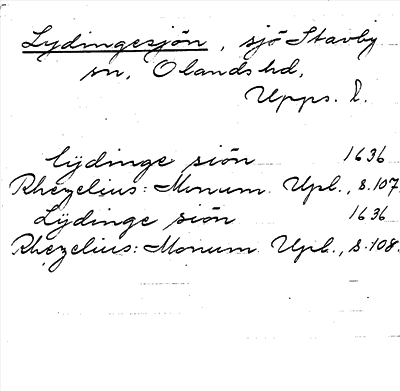 Lydingesjön, sjö Stavby
sn, Olands hd,
Upps. l.
Lydinge siön 1636
Rhezelius: Monum. Upl., s. 107.
Lydinge siön 1636
Rhezelius: Monum. Upl., s. 108.